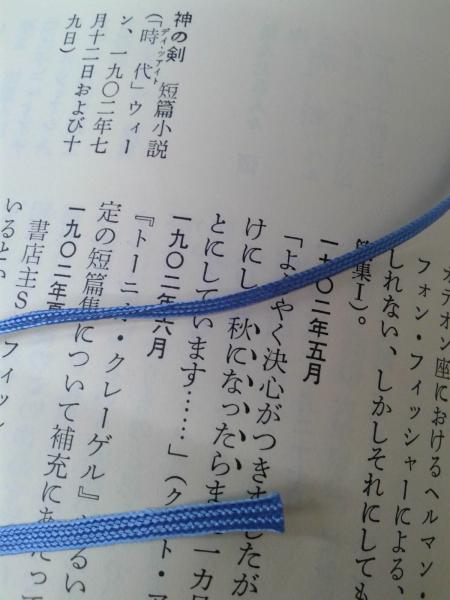 神の剣 短篇小説
(「時代」ウィー
デイ・ツァイト
ン、一九〇二年七
月十二日および十
九日)
オデオン座におけるヘルマン・
フォン・フィッシャーによる、
しれない、しかしそれにしても
集Ⅰ)。
一九〇二年五月
「ようやく決心がつき したが
けにし 秋になったらま 一カ
とにしています……」(ク ト・ア
一九〇二年六月
『トーニ ・クレーゲル』 るい
定の短篇集 について補充にあ って
一九〇二年
書店主S フィッ
いるとい